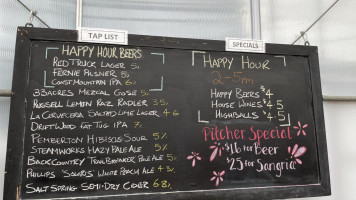 TAP LIST
HAPPY HOUR BEERS
RED TRUCK LAGER 5%
FERNIE PILSNER 5%
COAST MOUNTAIN IPA 6%
33 ACRES MEZCAL GOSE 5%
RUSSELL LEMON RAZ RADLER 3.5%
LA CERVECERA SALTED LIME LAGER 4.6
DRIFTWOOD FAT TUG IPA 7%
PEMBERTON HIBISCUS SOUR 5%
STEAMWORKS HAZY PALE ALE 5%
BACKCOUNTRY TRAILBREAKER PALE ALE 5%
PHILLIPS 'SOLARIS' WHITE PEACH ALE 4.5%
SALT SPRING SEMI-DRY CIDER 6.8%
SPECIALS
HAPPY HOUR
2-5pm
HAPPY BEERS $4
HOUSE WINES $4.5
HIGHBALLS $4.5
PITCHER SPECIAL
$16 FOR BEER
$25 FOR SANGRIA